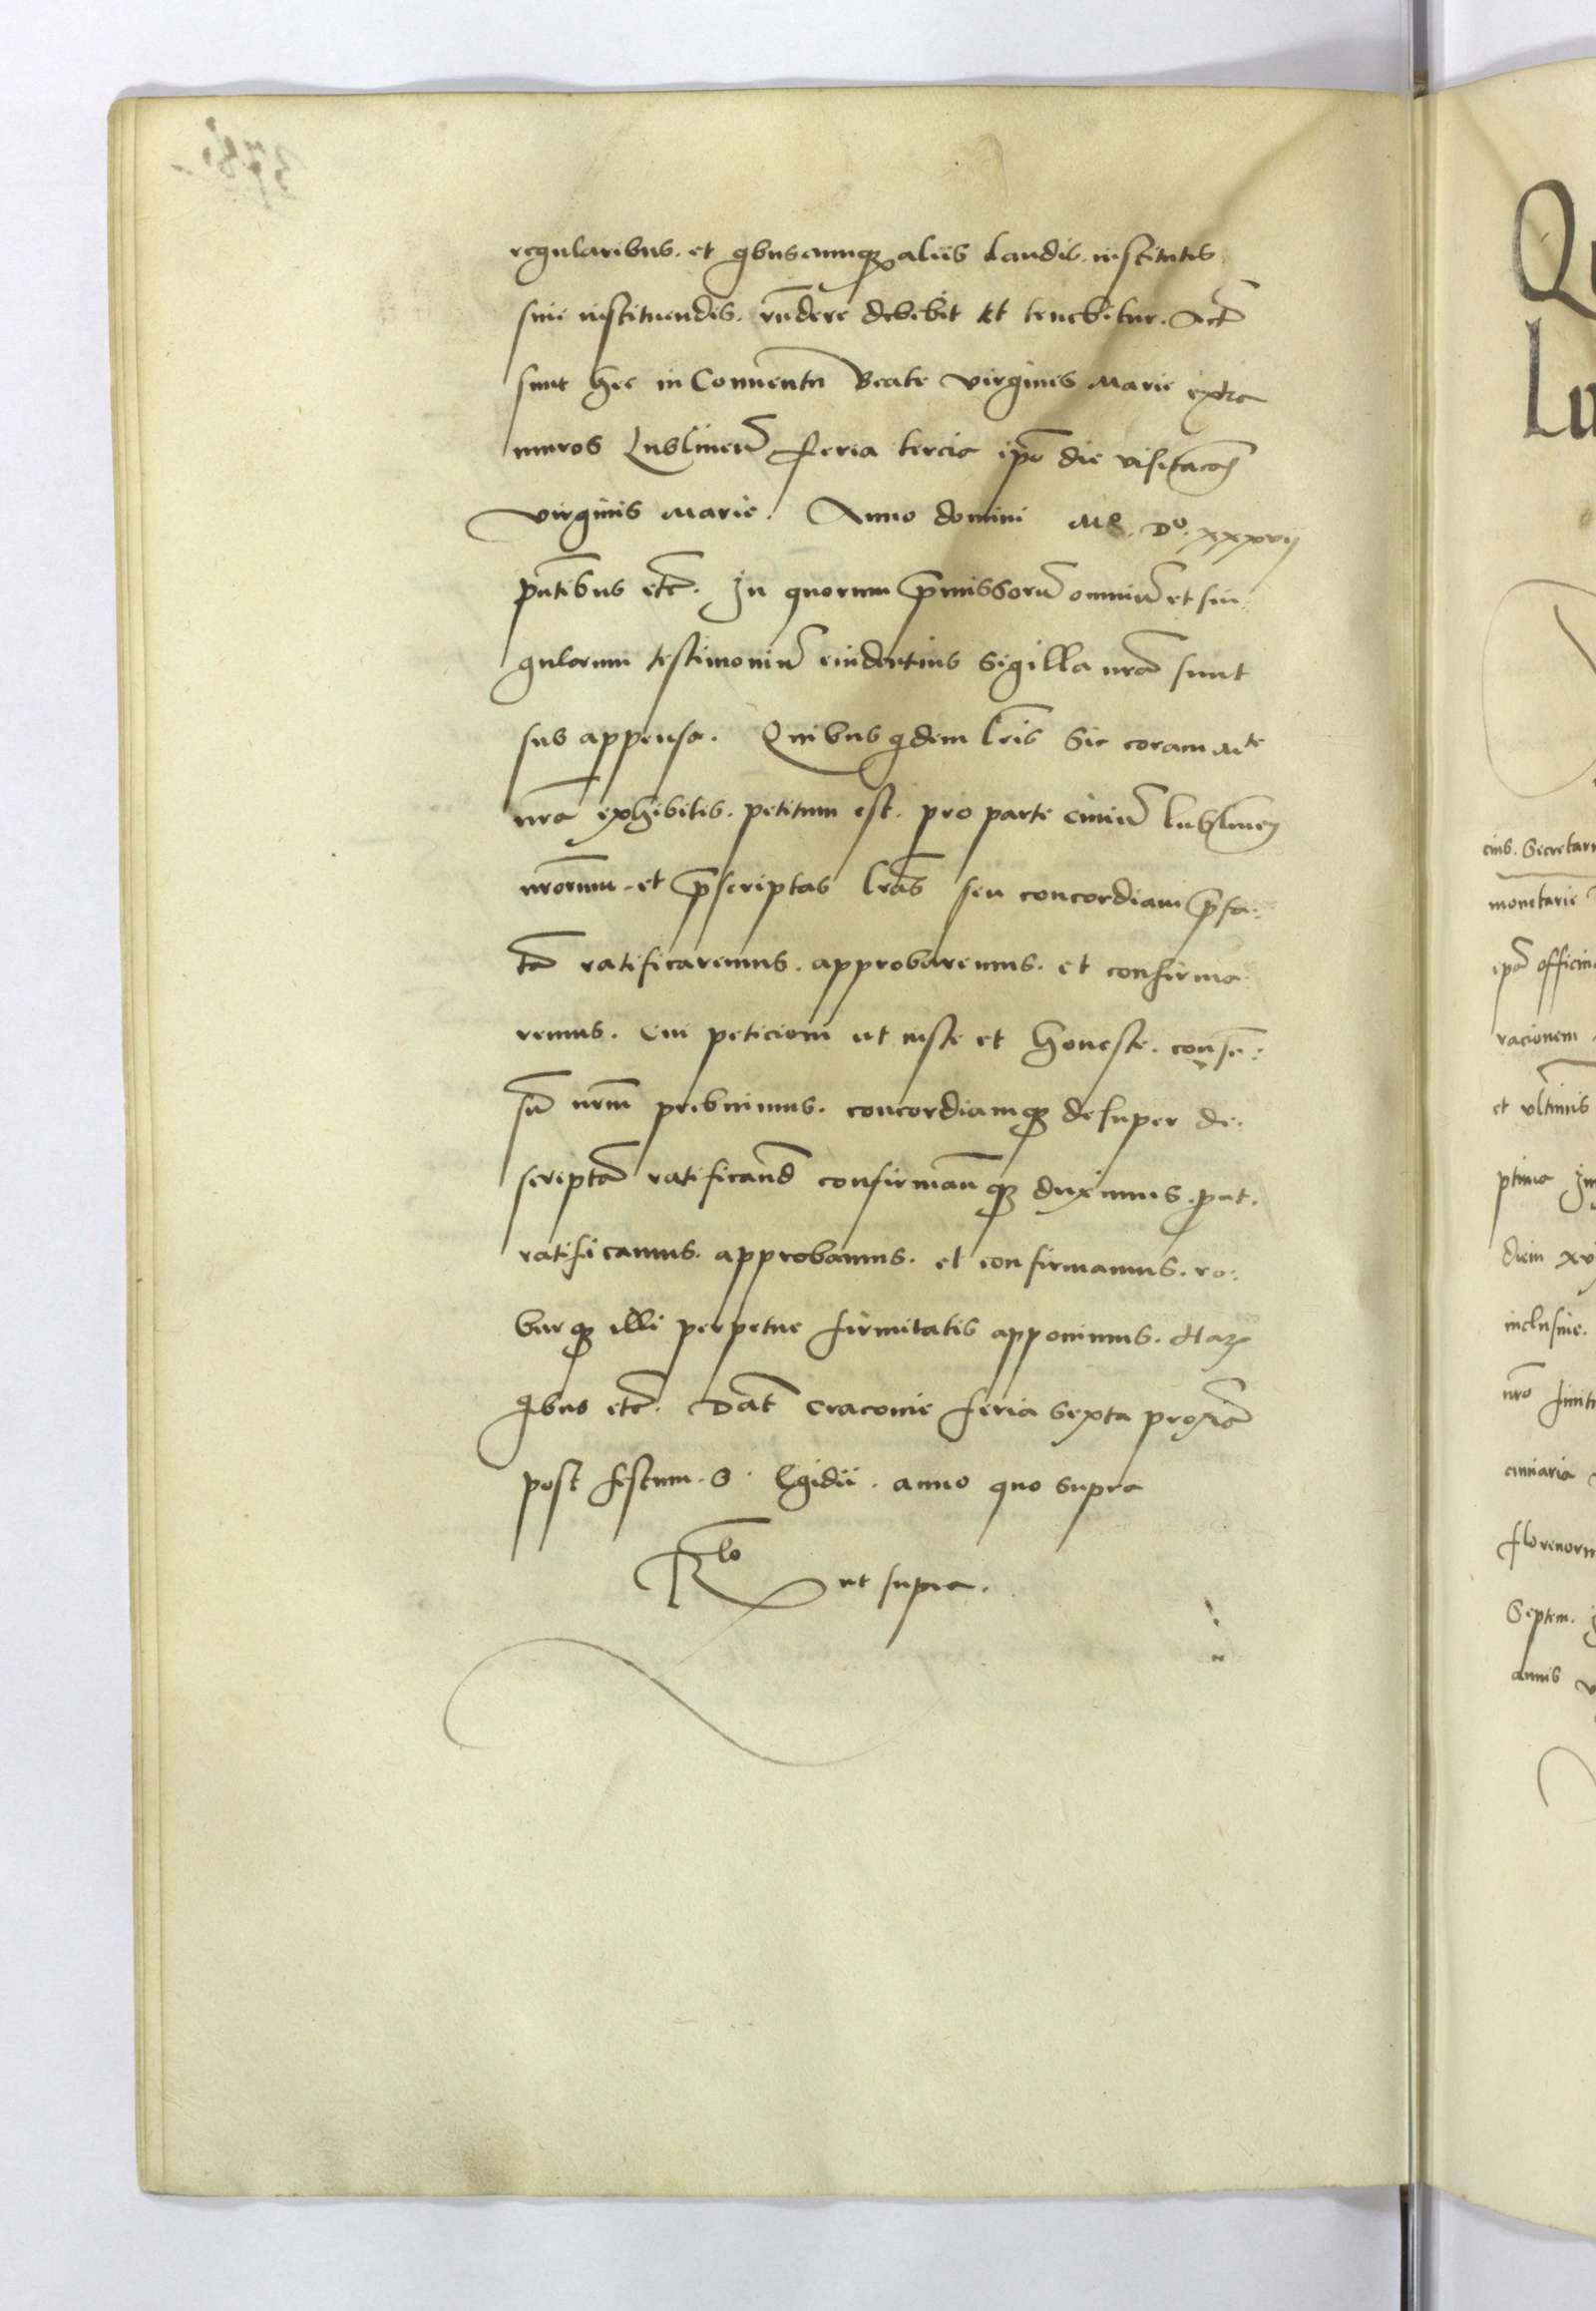 regularibus. et qbuscumq aliis laudis. institutis
siue instituendis. rndere debebit et tenebitur. Acta
sunt hec in Conuentu Beate virginis Marie extra
muros Lublinen feria tercia ipo die visitacois
virginis Marie. Anno domini Mo. Do. xxxvij
pntibus etc. In quorum pmissoru omniu et sin
gulorum testimoniu euidentius sigilla nra sunt
sub appensa. Quibus qdem lris sic coram Mte
nra exhibitis. petitum est. pro parte ciuiu lublinen
nrorum. et pscriptas lras seu concordiam pfa:
ta ratificaremus. approbaremus. et confirma
remus. Cui peticioni ut iuste et honeste. conse:
su nrm prebuimus. concordiamq desuper de:
scripta ratificand confirmanq duximus. put.
ratificamus. approbamus. et confirmamus. ro:
burq illi perpetue firmitatis apponimus. Harz
qbus etc. Dat Cracouie feria sexta proxia
post festum. S. Egidii. anno quo supra
Rlo ut supra.
Lu
eius. Secretari
monetarie
ipa officin
racionem
et vltimis
ptima
diem xv
inclusiue.
nro
florenorum
Septem.
annis